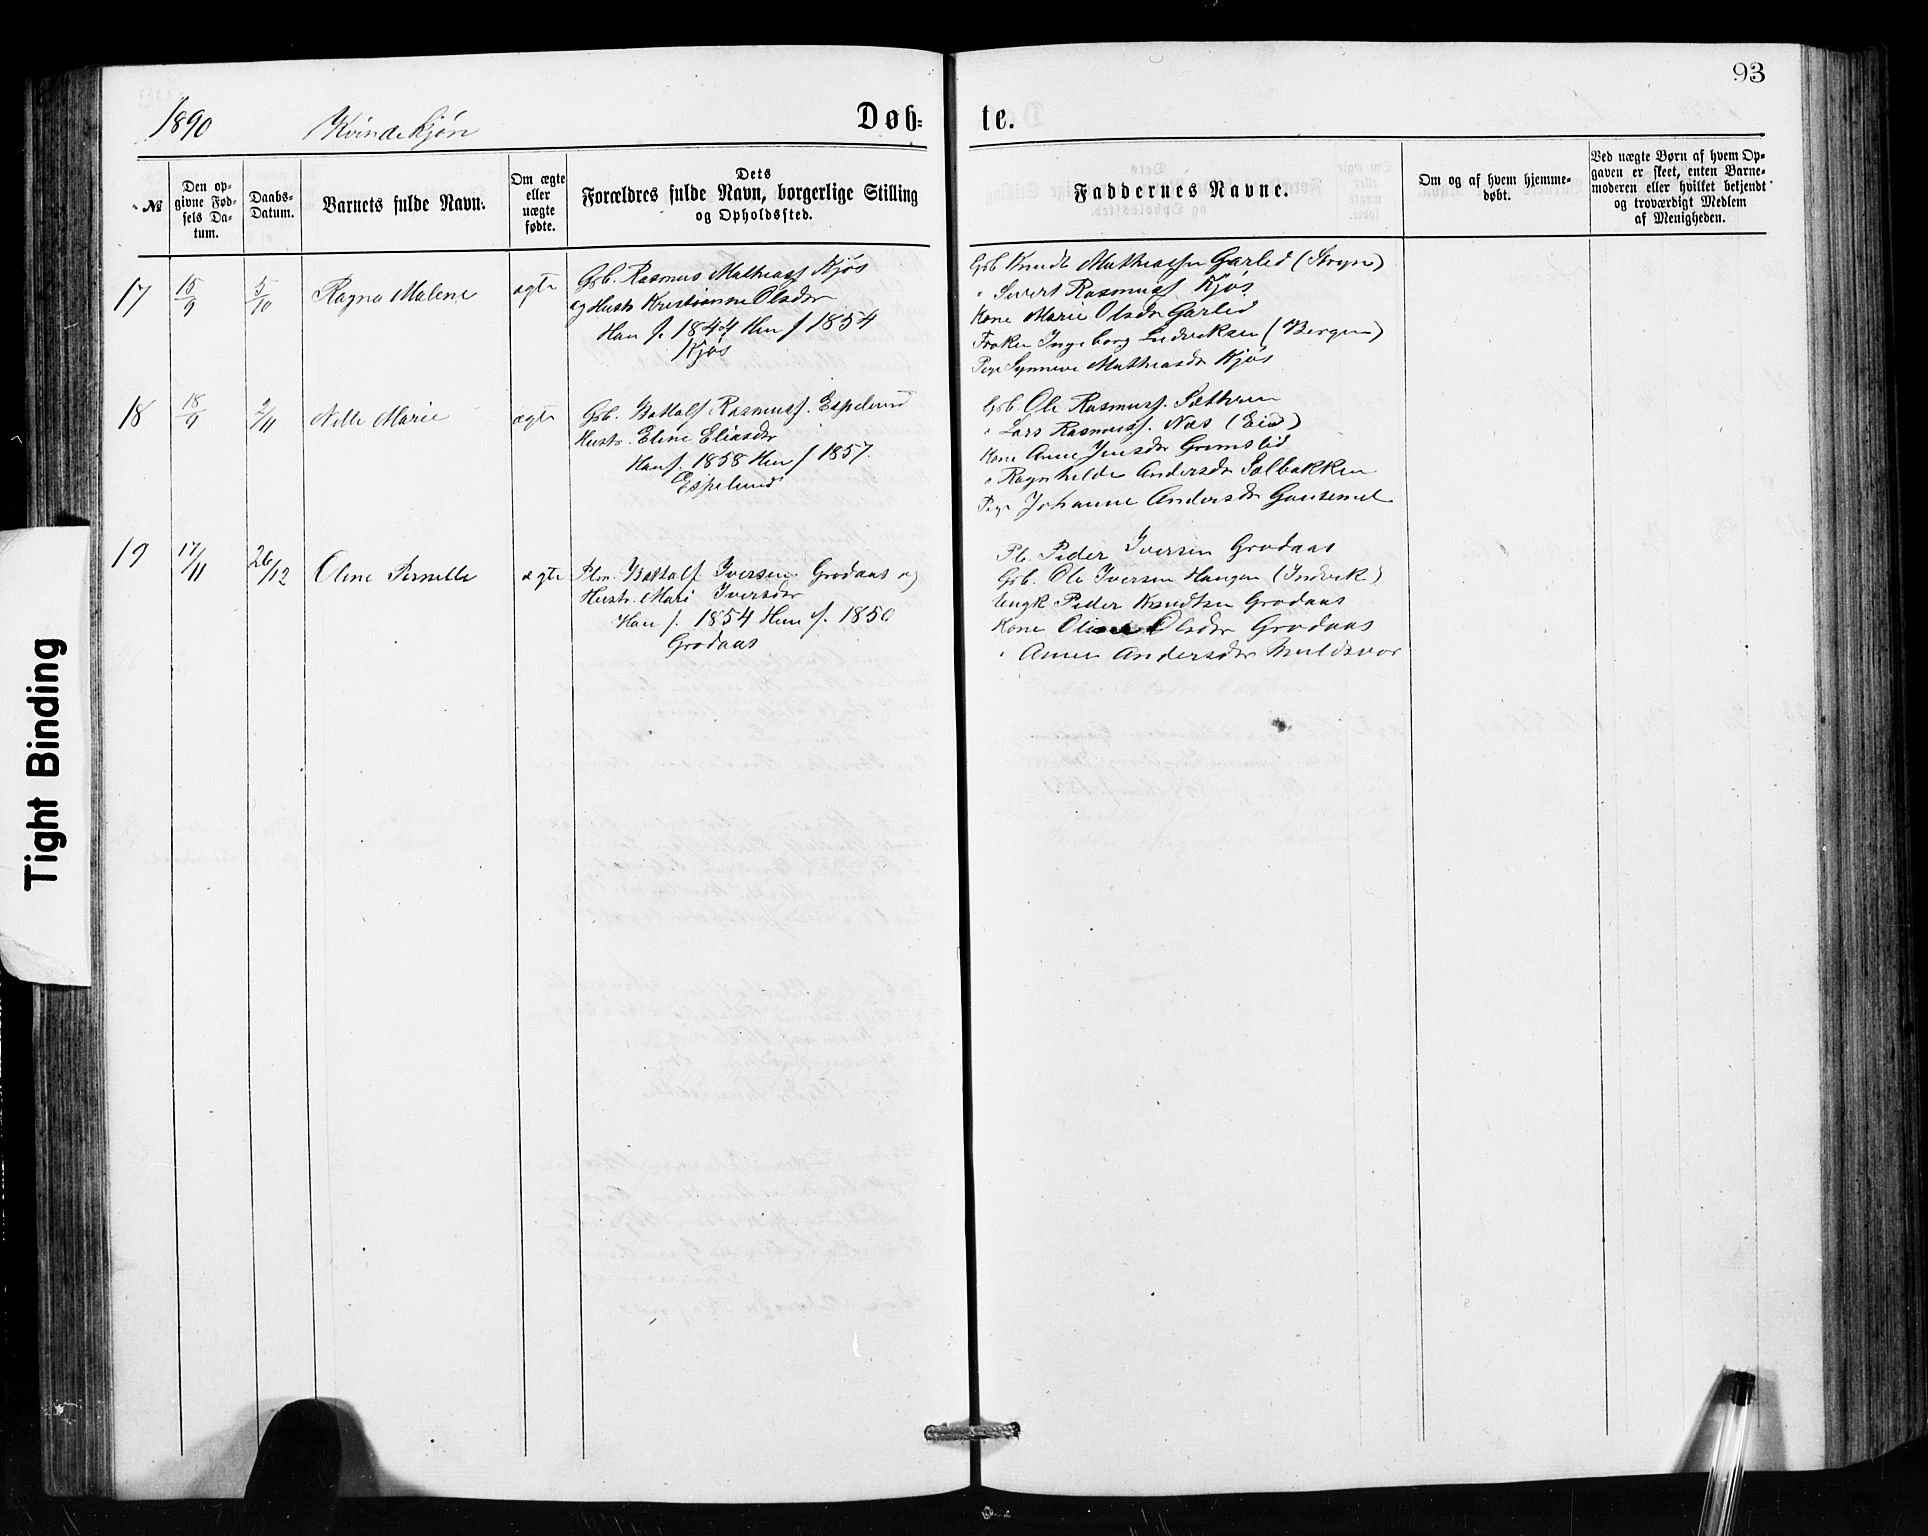 93
1890 Kvindekjøn Døb= te.
№
Den op-
givne Fød-
sels Da-
tum.
Daabs-
Datum.
Barnets fulde Navn.
Om ægte
eller
uægte
fødte.
Dets
Forældres fulde Navn, borgerlige Stilling
og Opholdssted.
Faddernes Navne.
Om og af hvem hjemme-
døbt.
Ved uægte Børn af hvem Op-
gaven er skeet, enten Barne-
moderen eller hvilket bekjendt
og troværdigt Medlem
af Menigheden.
17 15/9 5/10 Ragna Malene ægte
Gb. Rasmus Mathiass Kjøs
og Hustr Kristianne Olsdr
Han f. 1844 Hun f 1854
Kjøs
Gb Knudt Mathiassen Garlid (Stryn)
" Sivert Rasmuss Kjøs
Kone Marie Olsdr Garlid
Frøken Ingeborg Ludviksen (Bergen)
Pige Synneve Mathiasdr Kjøs
18 18/9 2/11 Nille Marie ægte
Gb. Rasmusf. Espelund
Hustr. Eline Eliasdr
Han f. 1858 Hun f 1857.
Espelund
Gb. Ole Rasmusf. Sætteren
" Lars Rasmusf. Nos (Eid)
Kone Anne Jensdr Grimslid
" Ragnhilde Andersdr Solbakken
Pige Johanne Andersdr Gausemel
19 17/11 26/12 Oline Pernille ægte
Iversen Grodaas og
Hustr. Mari Iversdr
Han f. 1854 Hun f. 1850
Grodaas
Peder Iversen Grodaas
Gb. Ole Iversen Haugen (Indvik)
Ungk Peder Knudtsen Grodaas
Kone Oline Olsdr Grodaas
" Anne Andersdr Muldsvor
Tight Binding